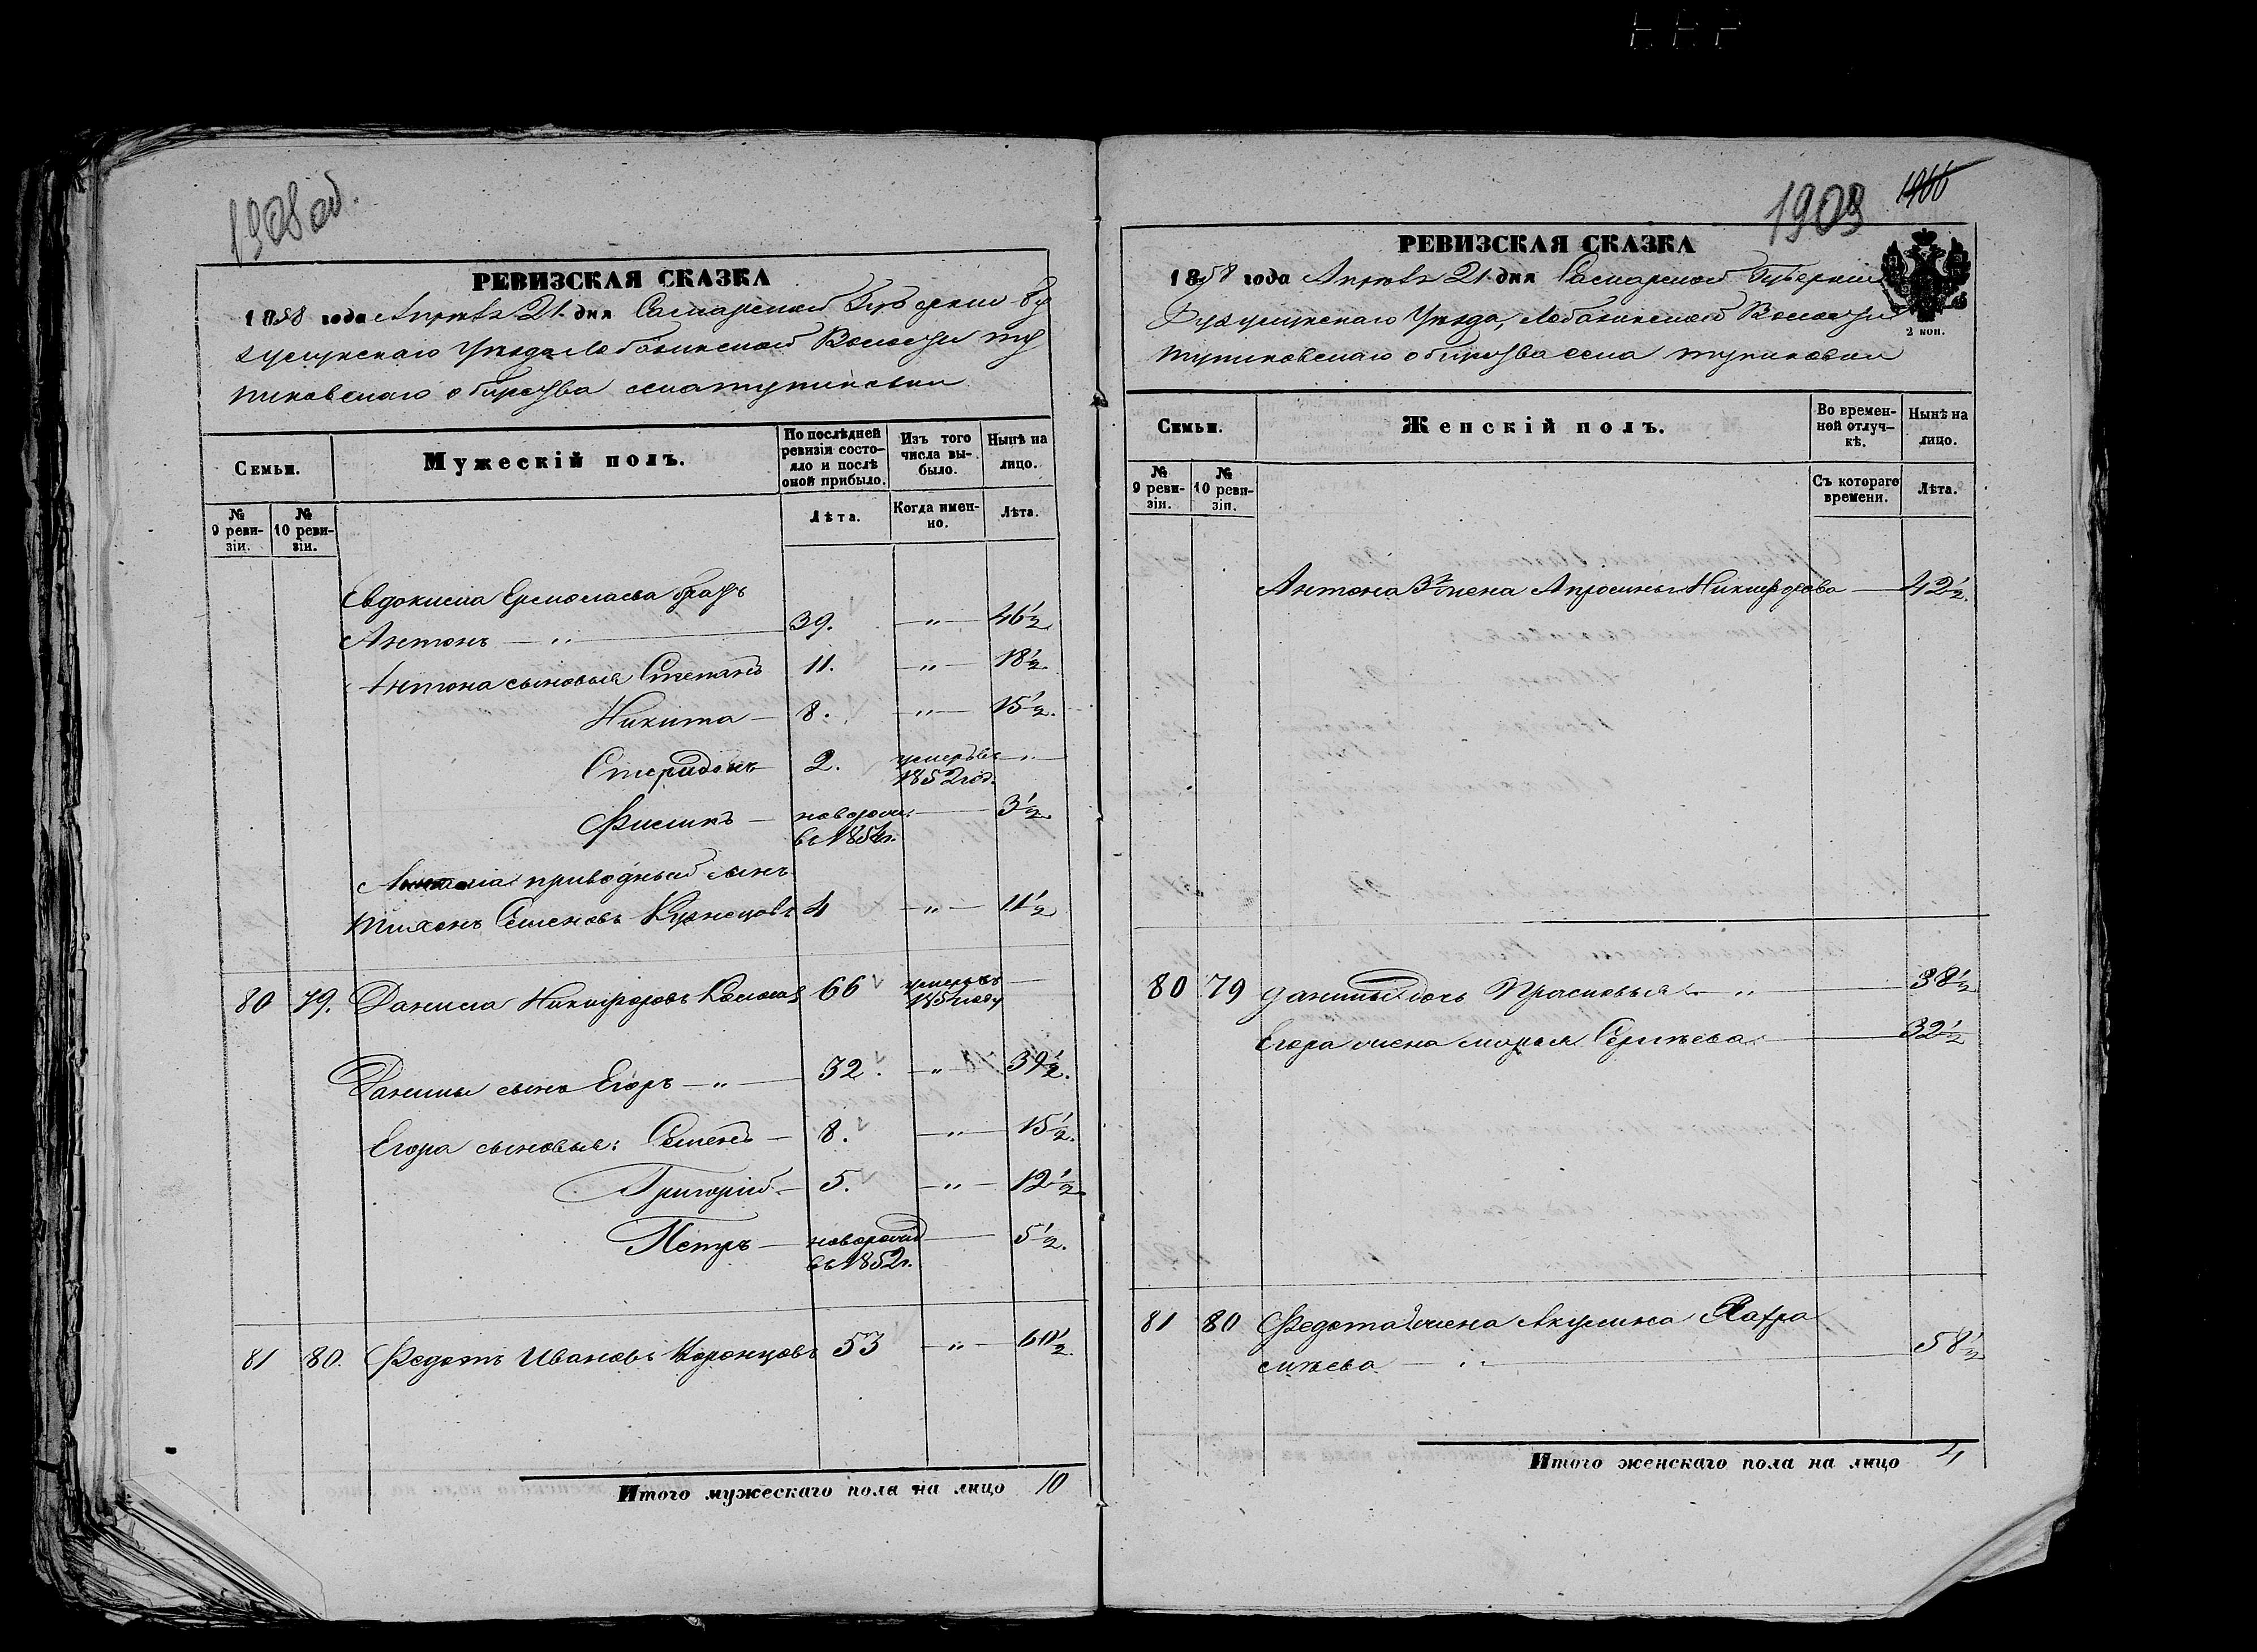 1908 об.
РЕВИЗСКАЯ СКАЗКА
1858 года Апреля 21 дня Самарской Губернии Бу
зулукскаго Уезда Лобазинской Волости ту
пиковскаго общества села тупиковки
Семьи.
Мужескій полъ.
По послѣдней ревизіи состояло и послѣ оной прибыло.
Изъ того числа выбыло.
Нынѣ на лицо.
№ 9 ревизіи.
№ 10 ревизіи.
Лѣта.
Когда именно.
Лѣта.
Евдокима Ермолаева братъ
Антонъ — " — 39. — " — 46½
Антона сыновья Степанъ 11. — " — 18½.
Никита — 8. — " — 15½.
Спиридонъ 2. умеръ въ 1852 год. — " —
Филипъ — новорож. въ 1854г. — 3½
приводный сынъ
Тихонъ Семеновъ Кузнецовъ 4 — " — 11½
80 79. Данила Никифоровъ 66 умеръ въ году —
Данилы сынъ Егоръ — " — 32. — " — 39½.
Егора сыновья: Семенъ — 8. — " — 15½.
Григорій — 5. — " — 12½.
Петръ — новорожд въ 1852г. — 5½.
81 80. Федотъ Ивановъ Воронцовъ 53 — " — 60½.
Итого мужескаго пола на лицо 10
1909 1966
РЕВИЗСКАЯ СКАЗКА
1858 года Апреля 21 дня Самарской Губернии
Бузулукскаго Уезда, Лобазинской Волости
тупиковскаго общества села тупиковки
2 коп.
Семьи.
Женскій полъ.
Во временной отлучкѣ.
Нынѣ на лицо.
№ 9 ревизіи.
№ 10 ревизіи.
Съ котораго времени.
Лѣта.
Антона жена Апросинья Никифорова — 42½.
80 79 данилы дочь Прасковья — " — 38½
Егора жена марья Сергеева — 32½
81 80 Федота жена Акулина
— " — 58½
Итого женскаго пола на лицо 4